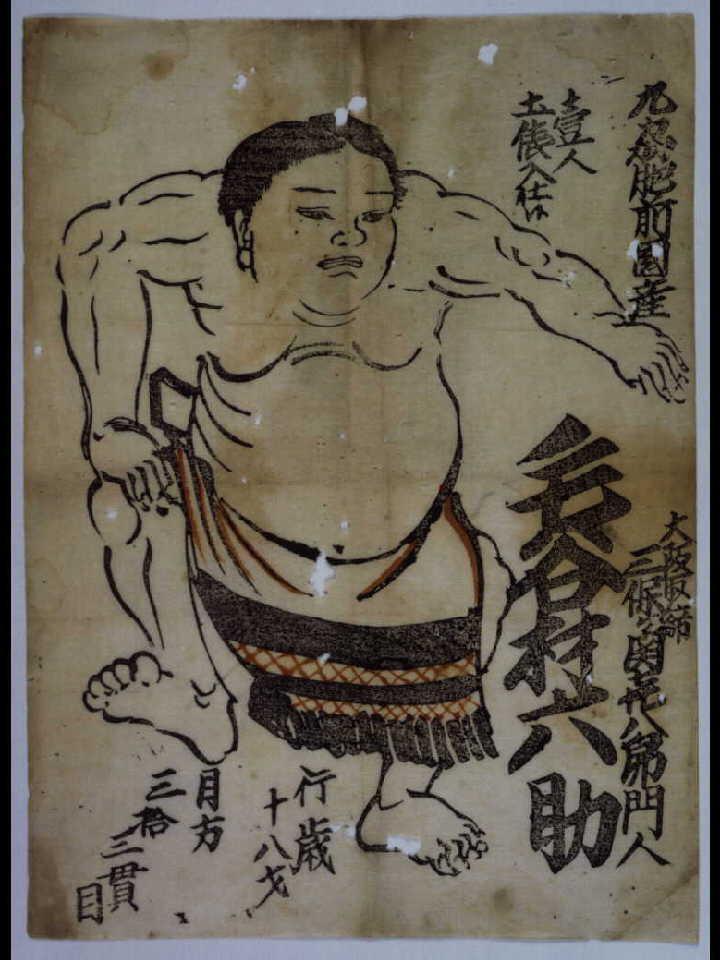 九刕肥前國産
壹人
土俵入仕候
大阪取締
三保ヶ関喜八郎門人
毛谷村六助
行歳
十八才
目方
三拾
三貫
目